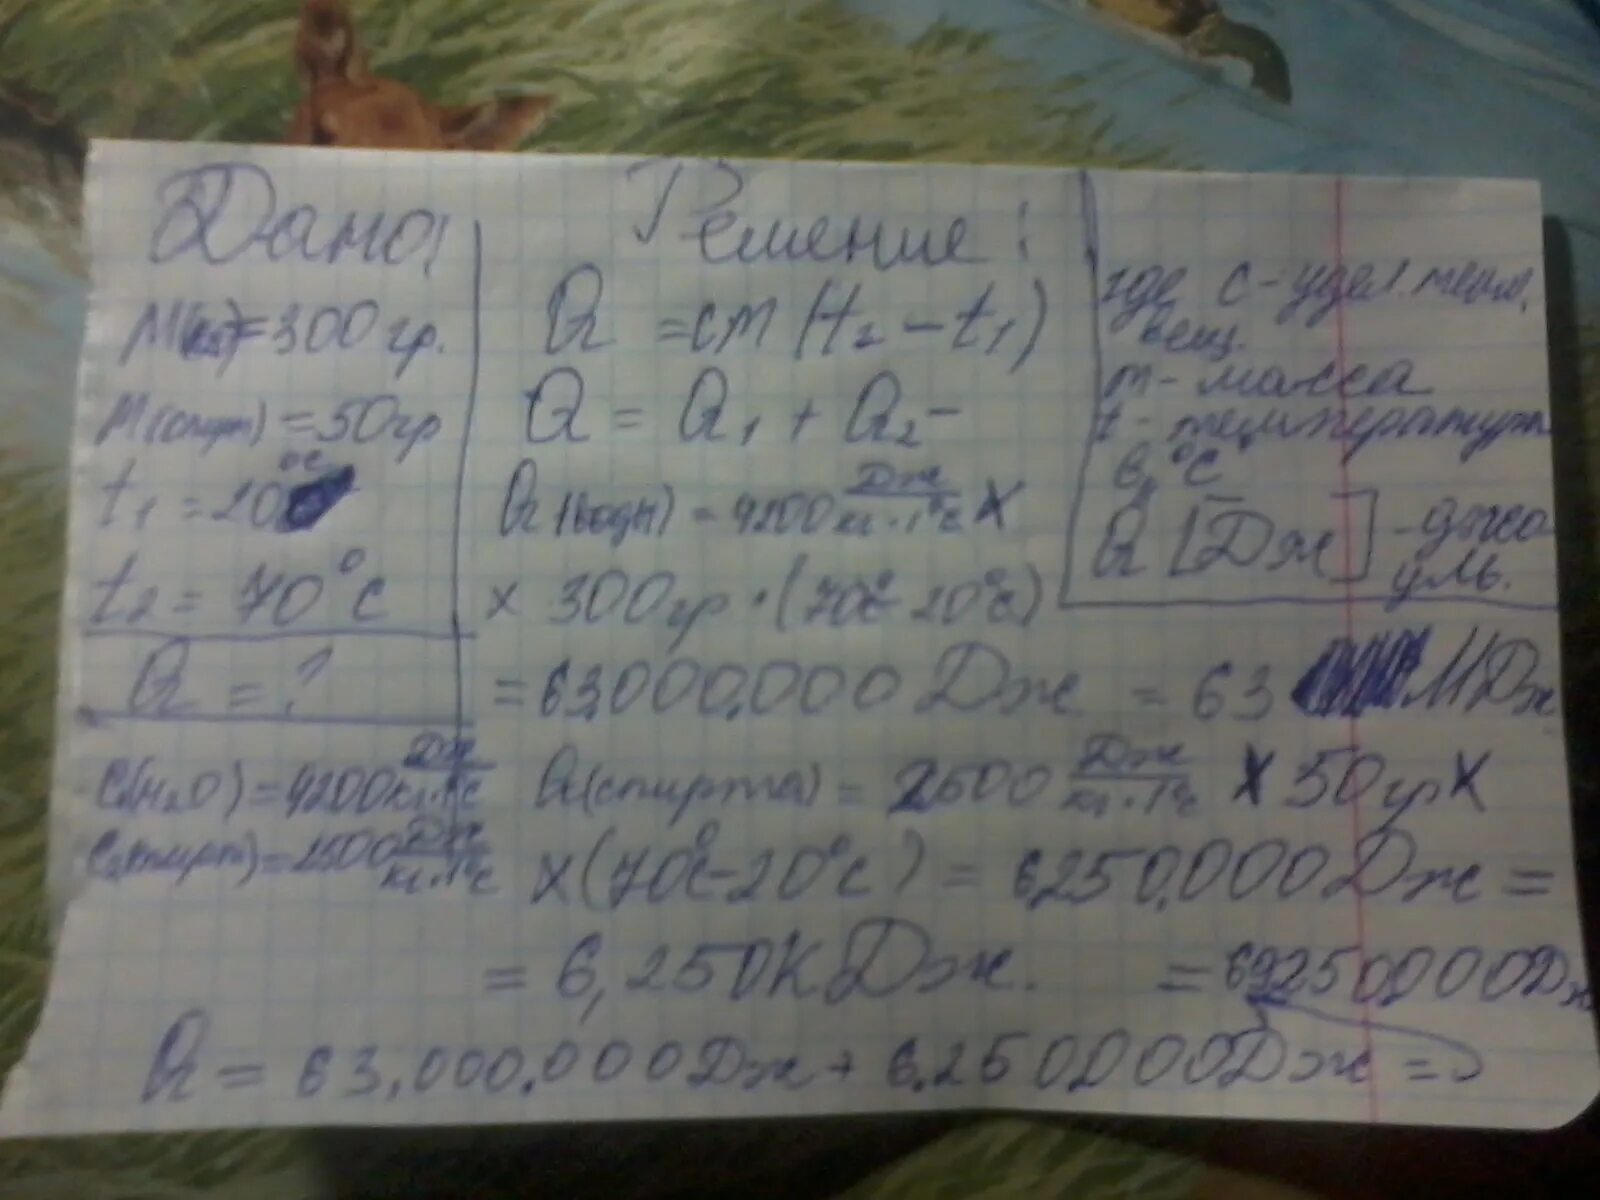 Дано!
M = 300 гр.
M(спирт) = 50 гр
t1 = 20 °C
t2 = 70°C
Q = ?
C(H2O) = 4200 Дж/кг·1°C
C(спирт) = 2500 Дж/кг·1°C
Решение:
Q = cm (t2 – t1)
Q = Q1 + Q2 –
Q(воды) = 4200 Дж/кг·1°C ×
× 300 гр · (70°C - 20°C)
= 63,000,000 Дж = 63 МДж
Q(спирта) = 2500 Дж/кг·1°C × 50 гр ×
× (70°C - 20°C) = 6,250,000 Дж =
= 6,250 КДж. = 69250000 Дж
Q = 63,000,000 Дж + 6,250000 Дж =
где C - удел. тепл.
вещ.
m - масса
t - температура
в °C
Q [Дж] - джо
уль.